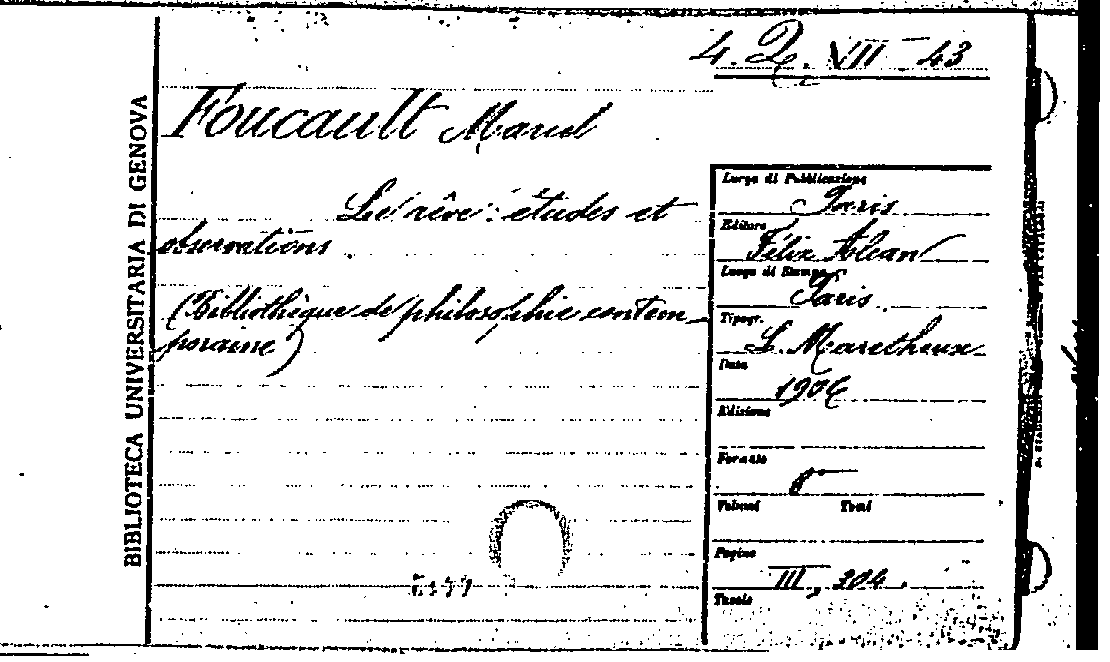 4. Q. VIII - 43
Foucault Marcel
Le rêve: études et
observations.
(Bibliothèque de philosophie contem-
poraine)
BIBLIOTECA UNIVERSITARIA DI GENOVA
Luogo di Pubblicazione
Paris
Editore
Félix Alcan
Luogo di Stampa
Paris
Tipogr.
L. Maretheux
Data
1906
Edizione
Formato
8°
Volumi Tomi
Pagine
III, 304.
Tavole